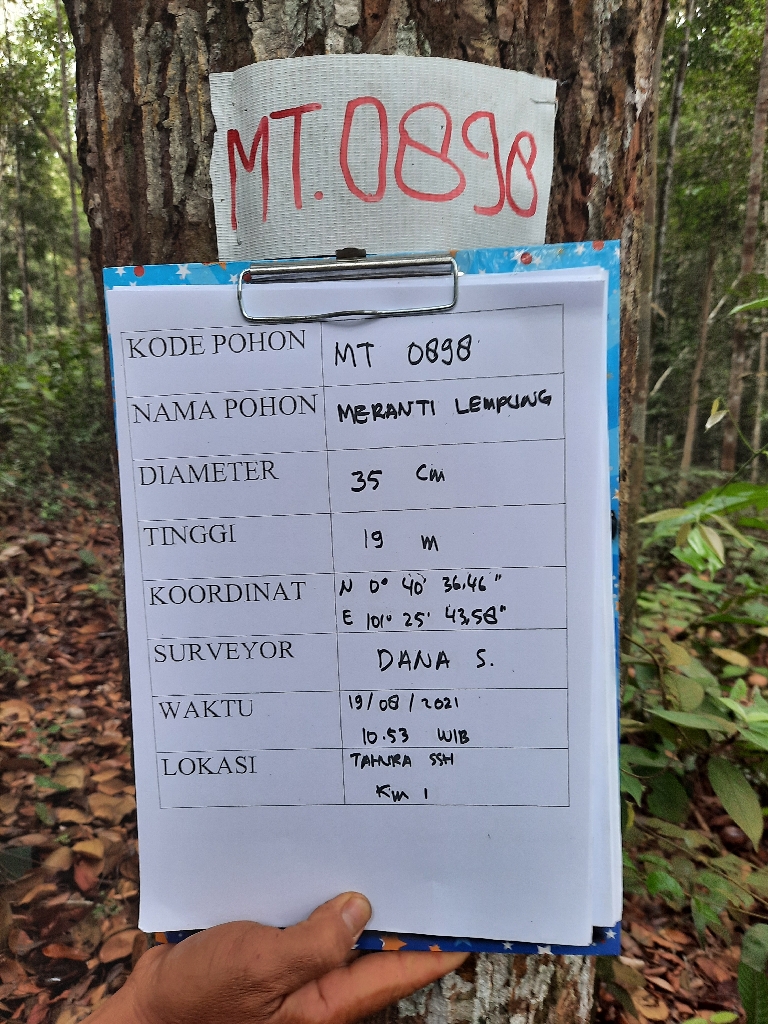 MT.0898
KODE POHON MT 0898
NAMA POHON MERANTI LEMPUNG
DIAMETER 35 Cm
TINGGI 19 m
KOORDINAT N 0° 40' 36,46"
E 101° 25' 43,58"
SURVEYOR DANA S.
WAKTU 19/08/2021
10.53 WIB
LOKASI TAHURA SSH
Km 1